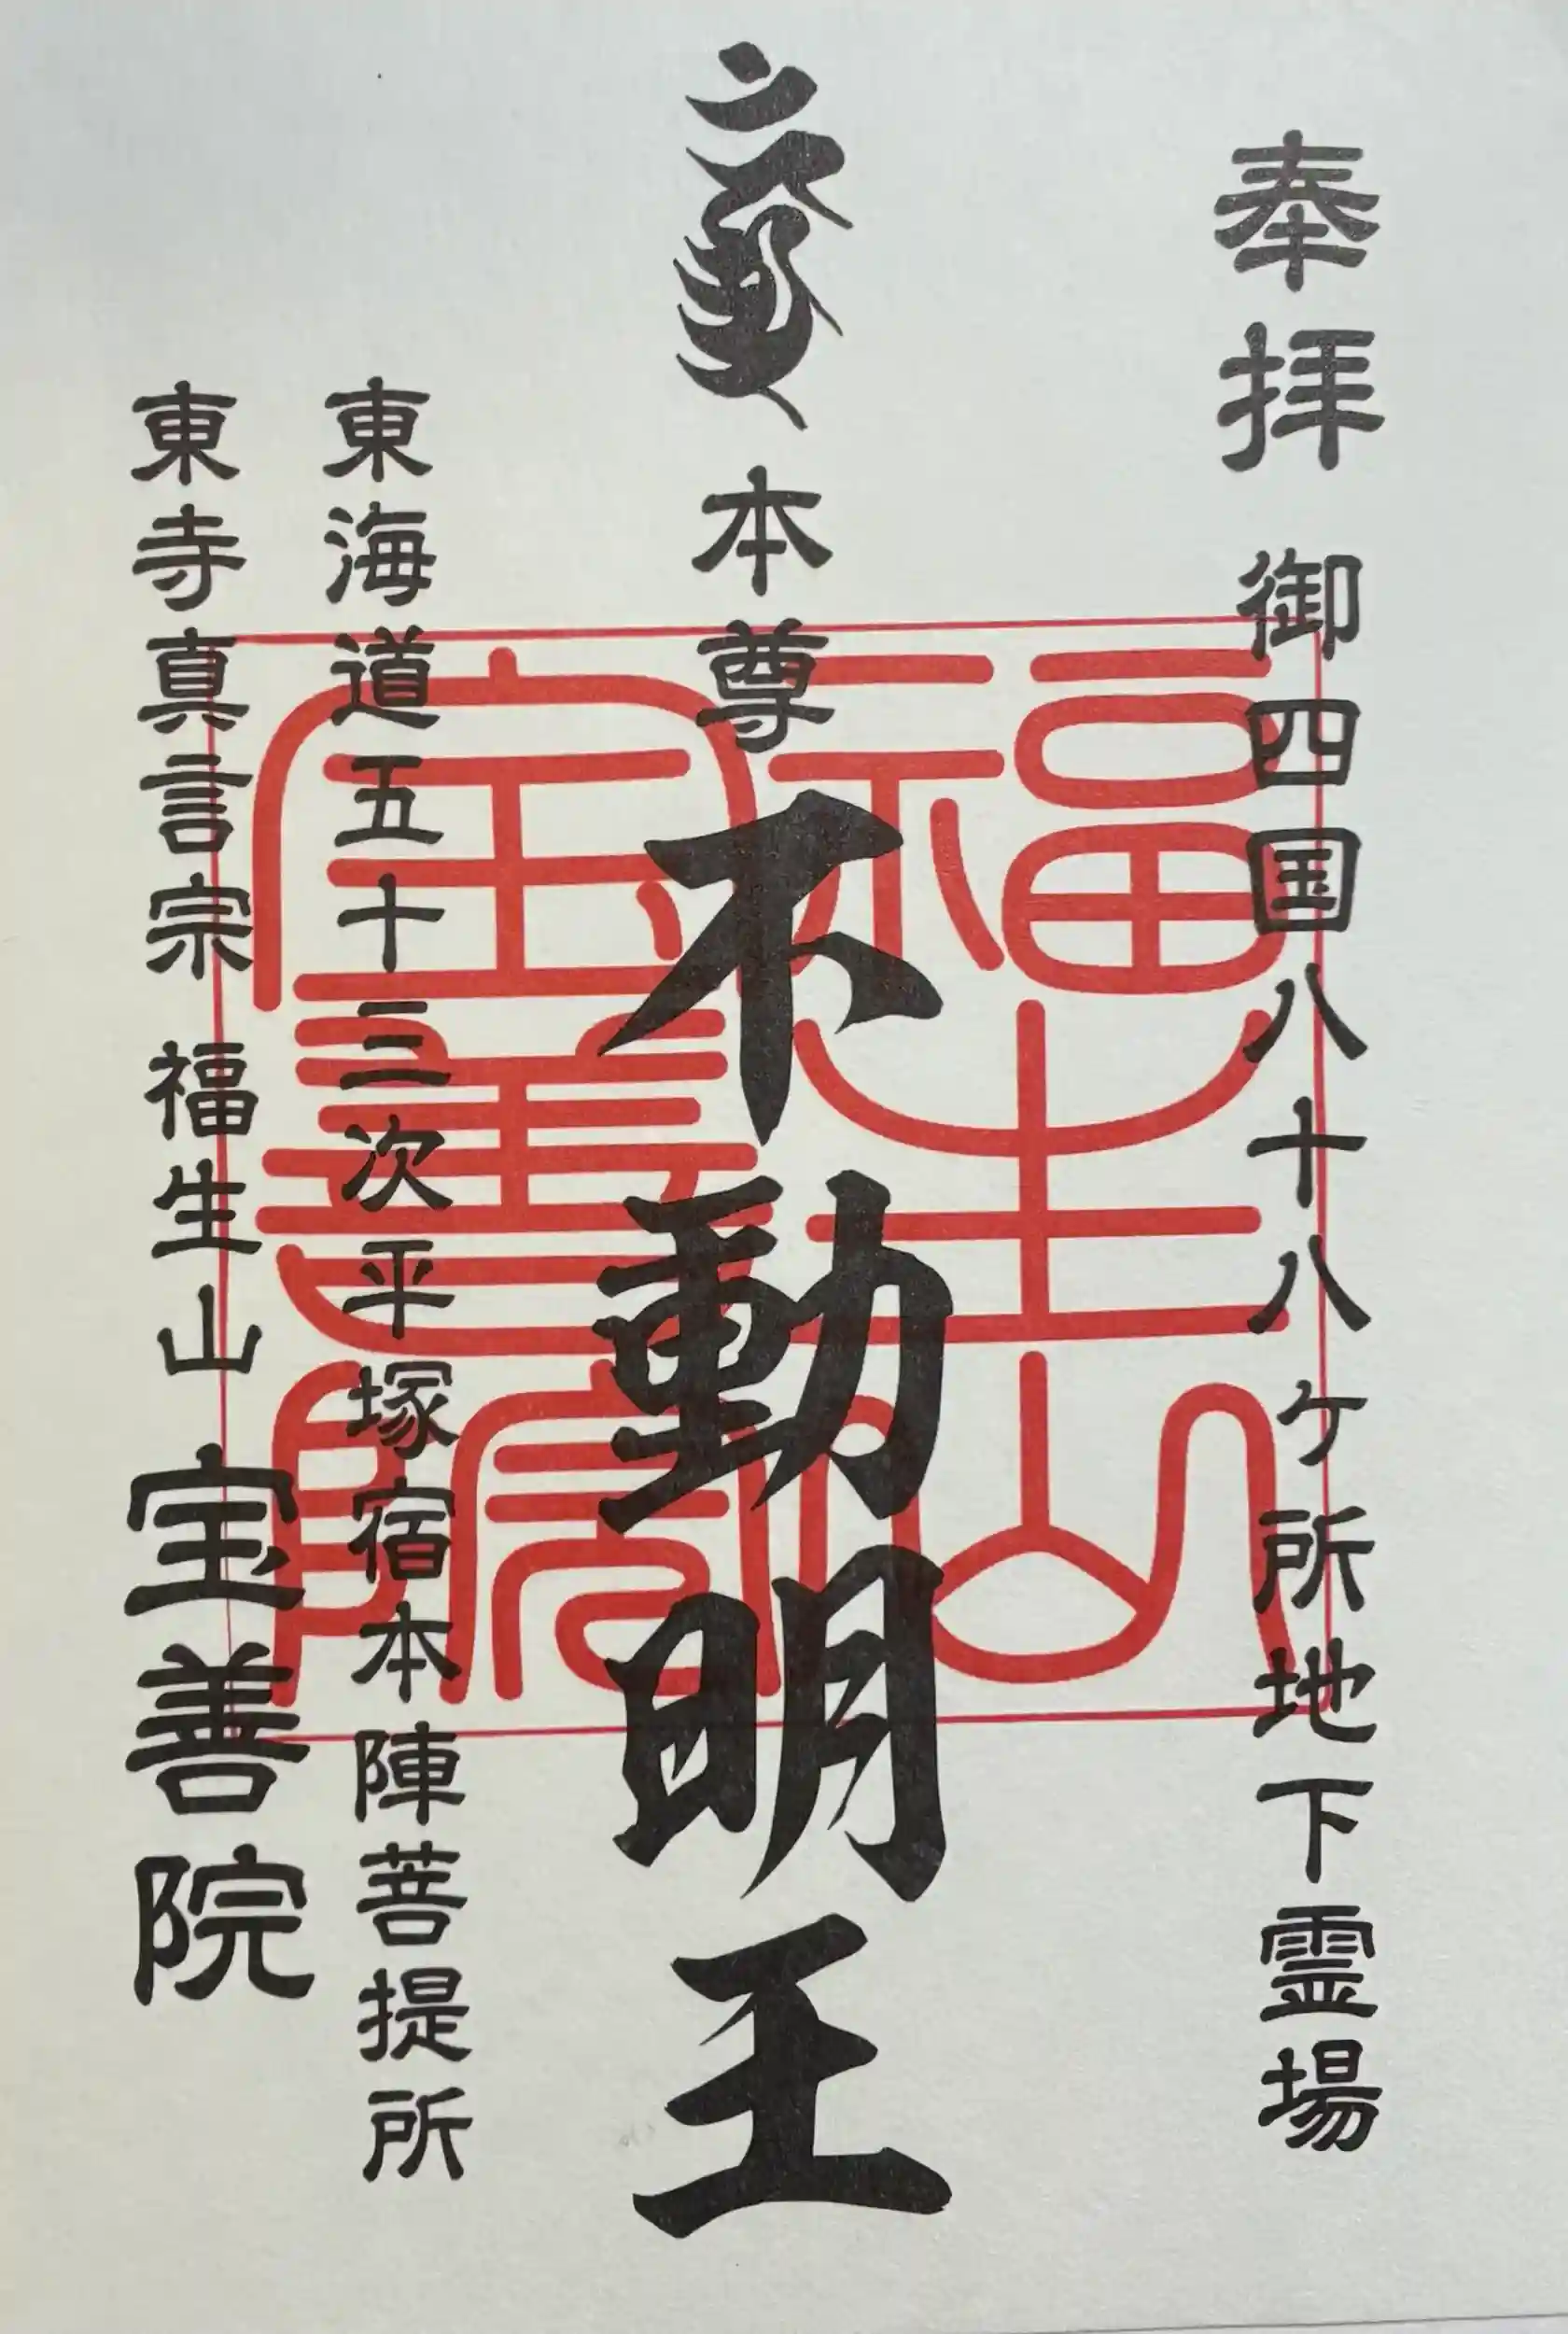 奉拝 御四国八十八ヶ所地下霊場
本尊 不動明王
東海道五十三次平塚宿本陣菩提所
東寺真言宗 福生山 宝善院
福生山
宝善院